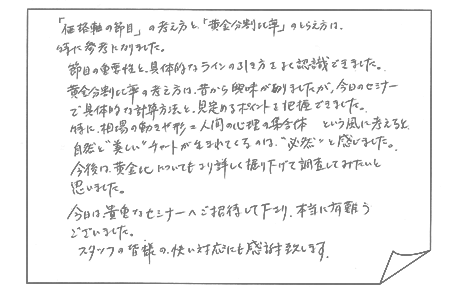 「価格軸の節目」の考え方と「黄金分割比率」のとらえ方は、
特に参考になりました。
節目の重要性と、具体的なラインの引き方をよく認識できました。
黄金分割比率の考え方は、昔から興味がありましたが、今日のセミナー
で具体的な計算方法と、見定めるポイントを把握できました。
特に、相場の動きや形＝人間の心理の集合体 という風に考えると、
自然と"美しい"チャートが生まれてくるのは、"必然"と感じました。
今後は、黄金比についてもより詳しく掘り下げて調査してみたいと
思いました。
今日は、貴重なセミナーへご招待して下り、本当に有難う
ございました。
スタッフの皆様の、快い対応にも感謝致します。